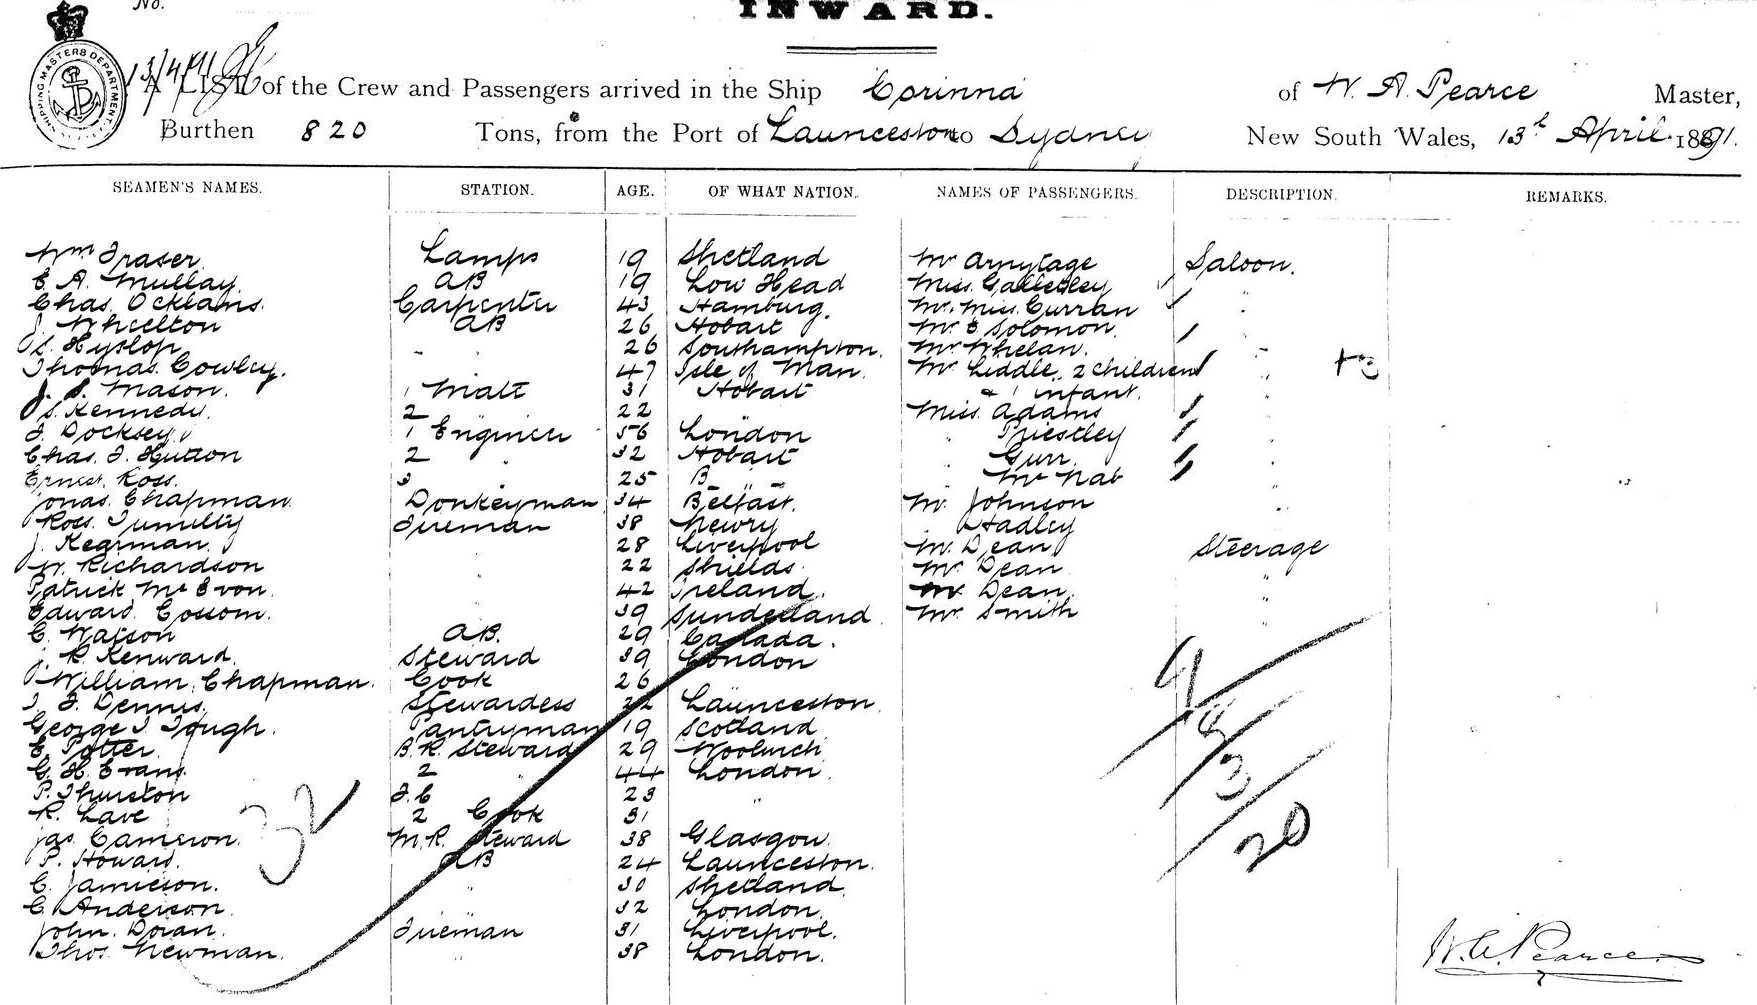 No.
INWARD.
SHIPPING MASTERS DEPARTMENT
13/4/91
A LIST of the Crew and Passengers arrived in the Ship Corinna of W. A. Pearce Master,
Burthen 820 Tons, from the Port of Launceston to Sydney New South Wales, 13th April 1891.
SEAMEN'S NAMES. STATION. AGE. OF WHAT NATION. NAMES OF PASSENGERS. DESCRIPTION. REMARKS.
Wm Fraser Lamps 19 Shetland Mr Armytage Saloon.
E. A. Mullay. AB 19 Low Head Miss Galletley "
Chas. Ocklams. Carpenter 43 Hamburg. Mr. Miss. Curran "
J. Wheelton AB 26 Hobart Mr E Solomon.
Hyslop " 26 Southampton. Mr Whelan. "
Thomas. Cowley. " 47 Isle of Man. Mr Liddle, 2 children " +3
J. S. Mason. 1 Mate 31 Hobart & 1 infant.
S. Kennedy. 2 " 22 " Miss Adams "
J. Docksey. 1 Engineer 56 London " Priestley "
Chas. J. Hutton 2 " 32 Hobart " Gurr. "
Ernest. Ross. 3 " 25 " Mc Nab "
Jonas. Chapman Donkeyman 34 Belfast. Mr. Johnson "
Ross. Tumilty Fireman 38 Newry " Hadley "
J. Kearman. " 28 Liverpool Mr. Dean Steerage
W. Richardson " 22 Shields. Mr Dean "
Patrick Mc Evon. " 42 Ireland. Dean. "
Edward. Cossom. " 39 Sunderland Mr. Smith "
C. Watson AB. 29 Canada.
J. R. Kenward. Steward 39 London
William. Chapman. Cook 26 "
J. Dennis. Stewardess 22 Launceston.
George J Tough. Pantryman 19 Scotland
E. Potter. B. R. Steward 29 Woolwich
G. H. Evans. 2 " 44 London.
P. Thurston F. C 23 "
R. Lave 2 Cook 31
Jas. Cameron. M. R. Steward 38 Glasgow.
P. Howard. AB 24 Launceston.
C. Jamieson. " 30 Shetland.
C. Anderson. " 32 London.
John. Doran. Fireman 31 Liverpool.
Thos. Newman. " 38 London.
32
9
8
3
20
W. A. Pearce